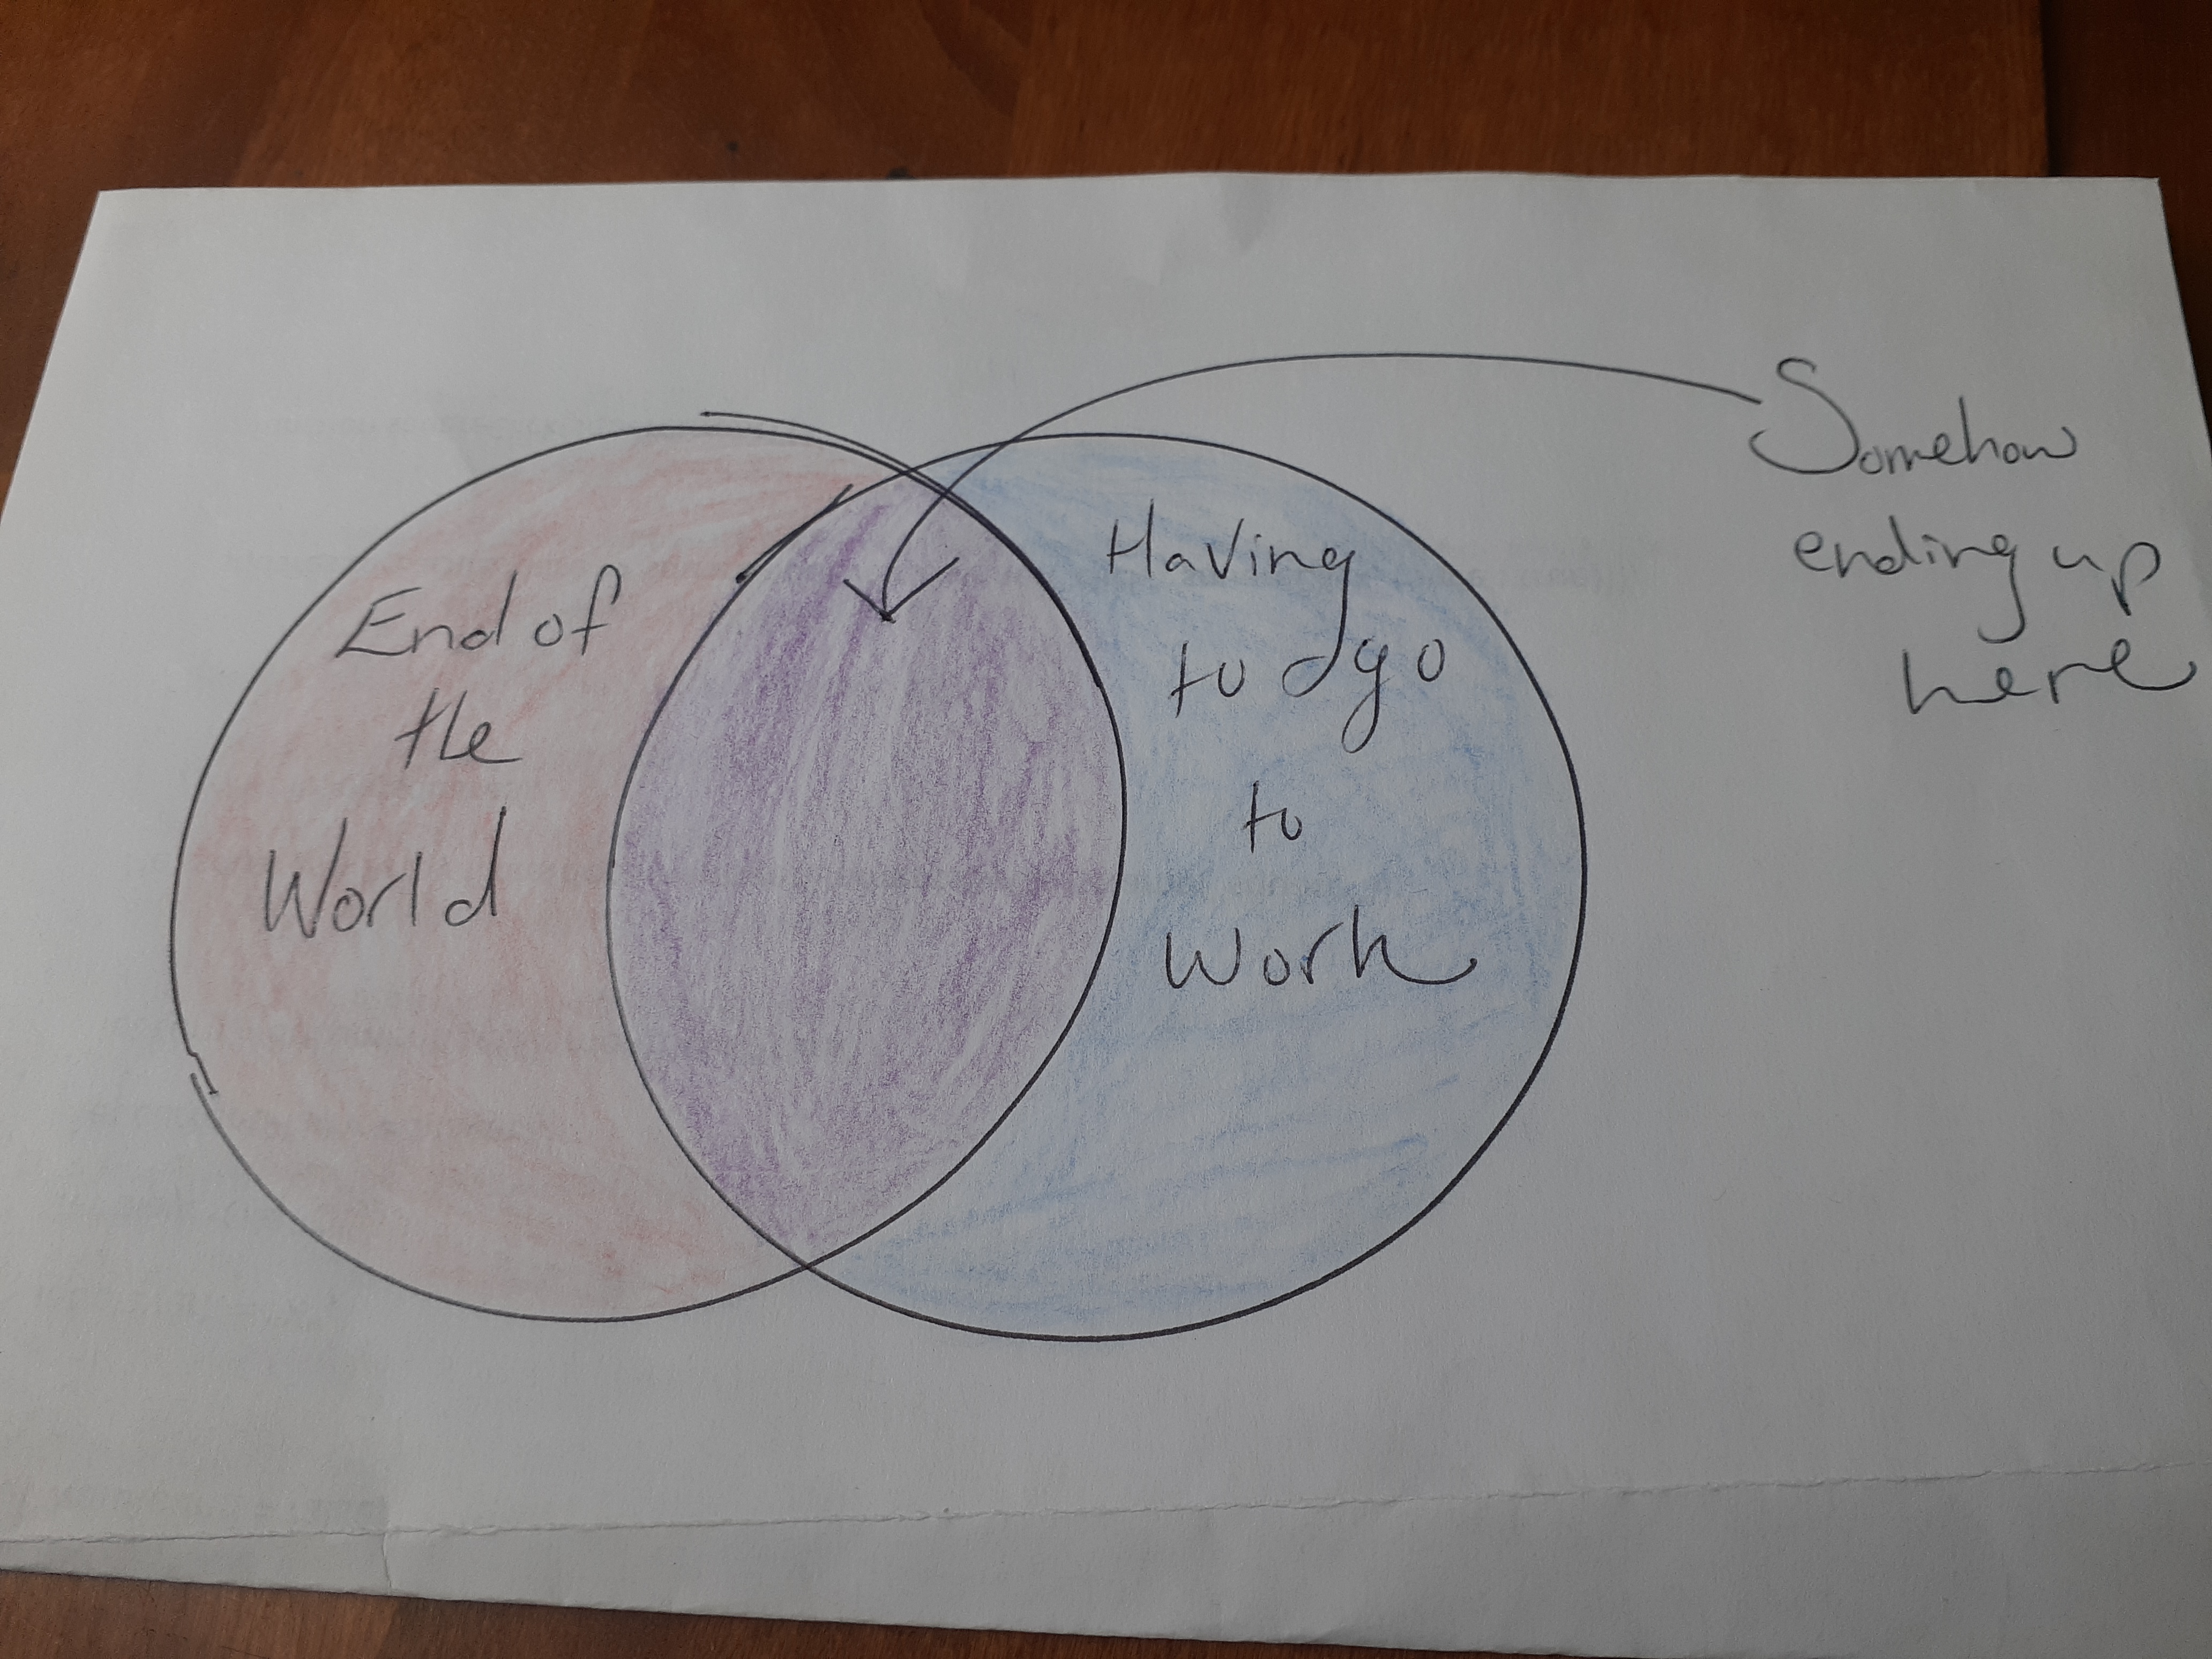 End of
the
World
Having
to go
to
work
Somehow
ending up
here